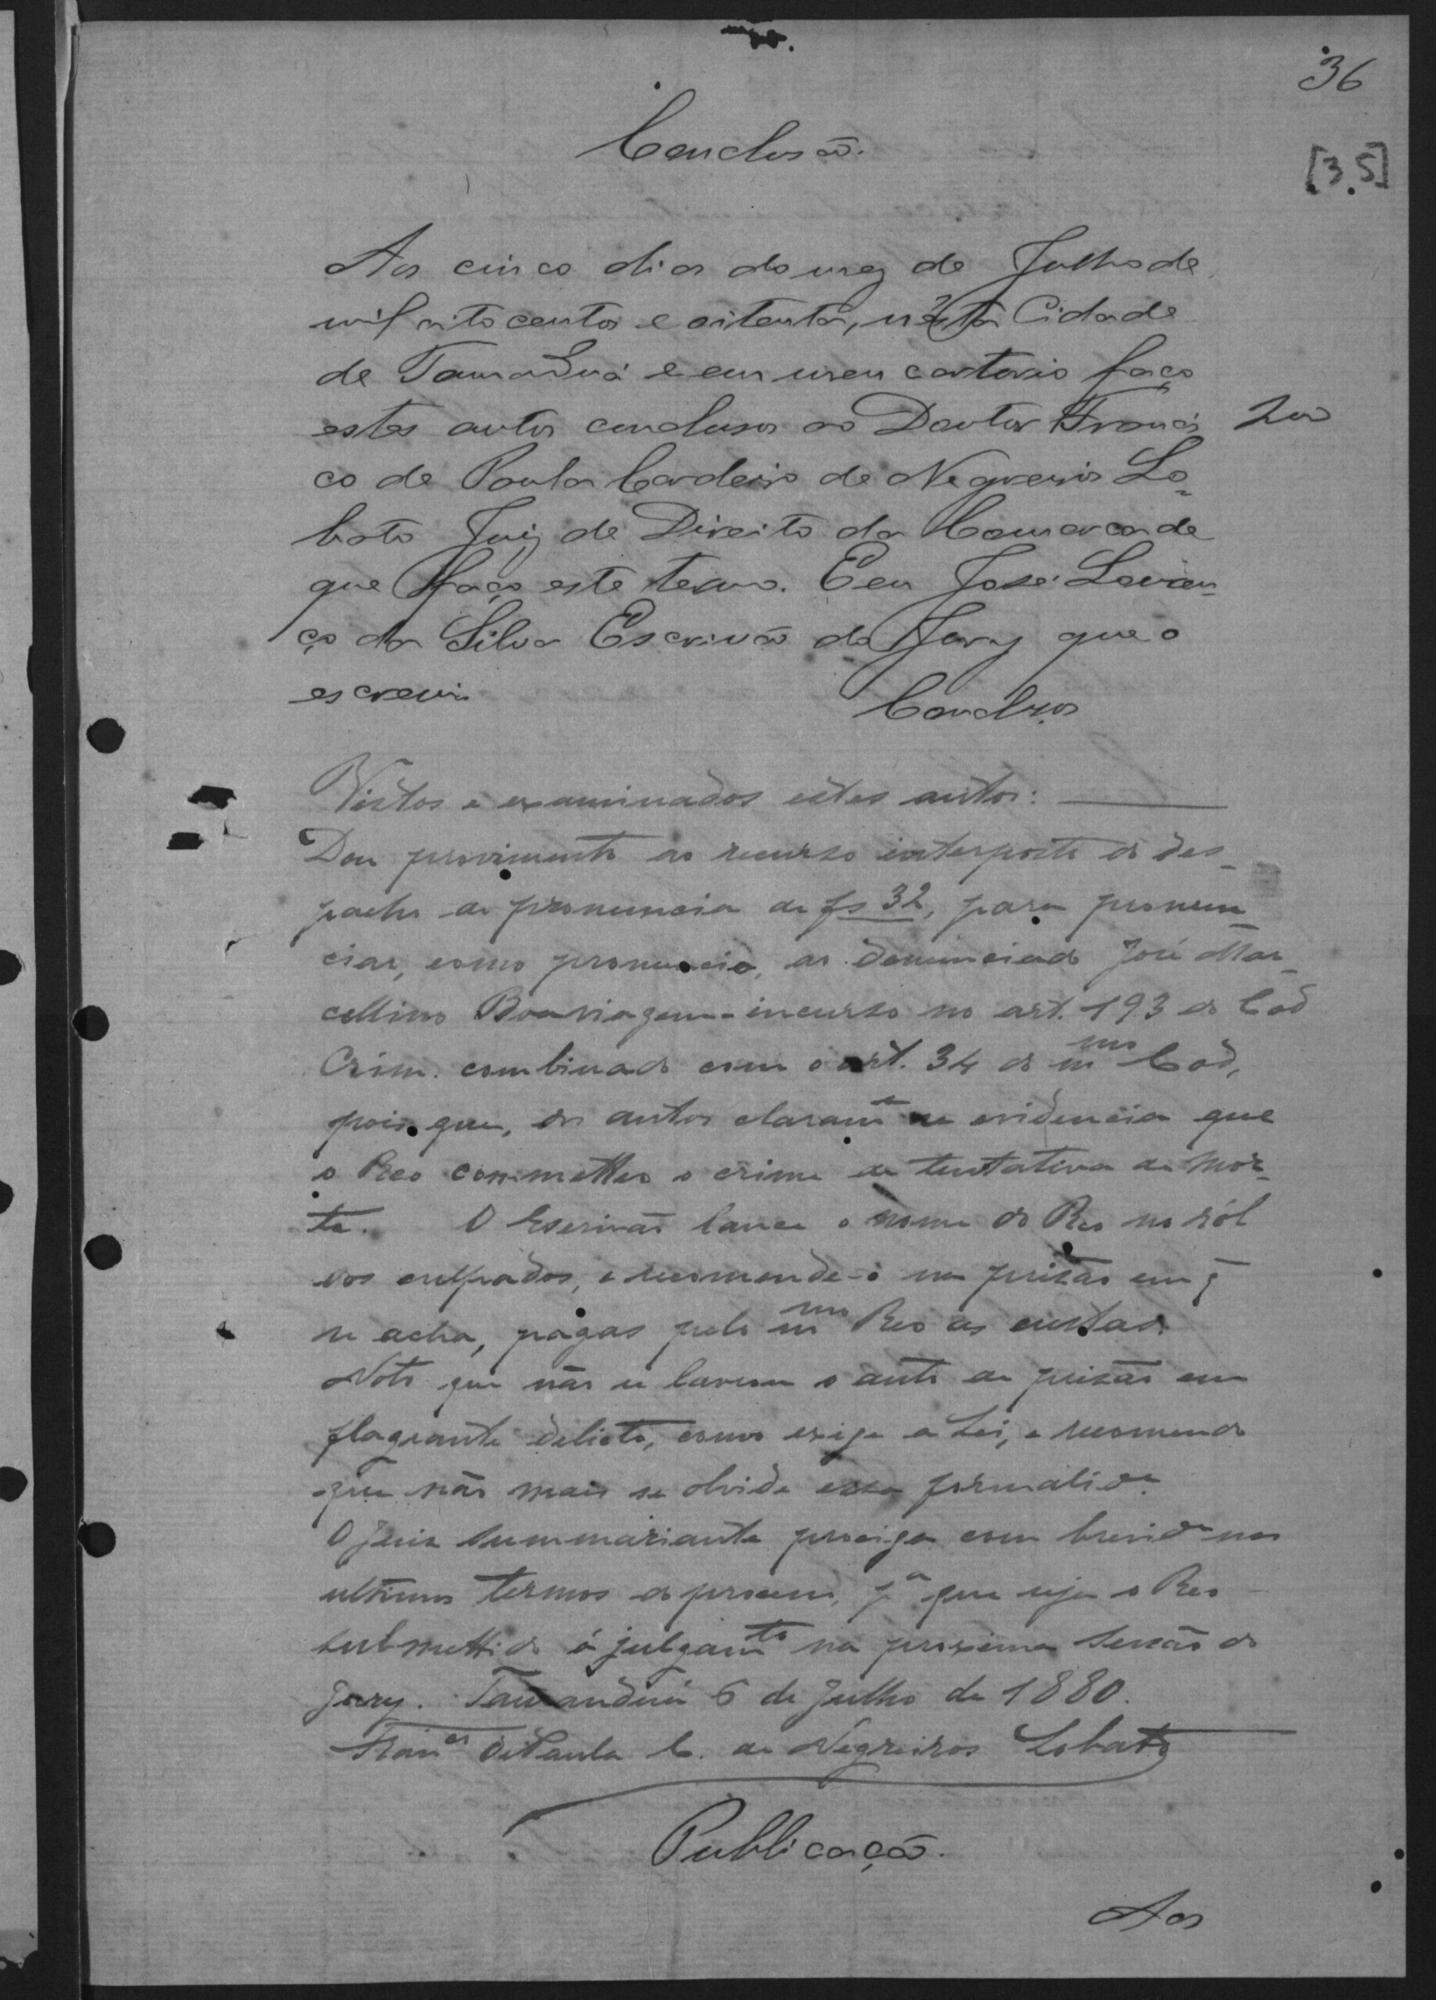 36
[35]
Conclusão.
Aos cinco dias do mez de Julho de
mil oito centos e oitenta, n'esta Cidade
de Tamanduá e em meu cartorio faço
estes autos conclusos ao Doutor Francis 200
co de Paula Cordeiro de Negreiros Lo-
bato Juiz de Direito da Comarca de
que faço este termo. E eu José Louren-
ço da Silva Escrivão do Jury que o
escrevi.
Conclusos
Vistos e examinados estes autos:
Dou provimento ao recurso interposto do des-
pacho de pronuncia de fs 32, para pronun-
ciar, como pronuncio, ao denunciado José Mar-
cellino Boaviagem incurso no art. 193 do Cod
Crim. combinado com o art. 34 do m mo Cod,
pois que, dos autos claramte se evidencia que
o Reo commetteo o crime de tentativa de mor-
te. O Escrivão lance o nome do Reo no ról
dos culpados, e recomende-o na prizão em q̃
se acha, pagas pelo mmo Reo as custas.
Noto que não se lavrou o auto de prizão em
flagrante delicto, como exige a Lei, e recomendo
que não mais se olvide essa formalide.
O Juiz summariante prosiga com brevide nos
ultimos termos do processo, pa que seja o Reo
submettido á julgamto na proxima sessão do
Jury. Tamanduá 6 de Julho de 1880.
Franco de Paula C. de Negreiros Lobato
Publicação.
Aos